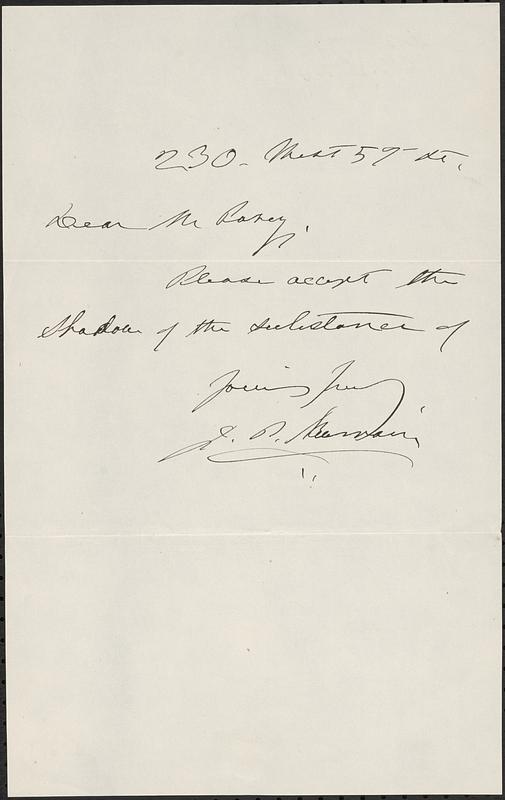 230. West 59 St.
Dear Mr Pavey,
Please accept the
Shadow of the substance of
Yours Truly
J. P. Newman